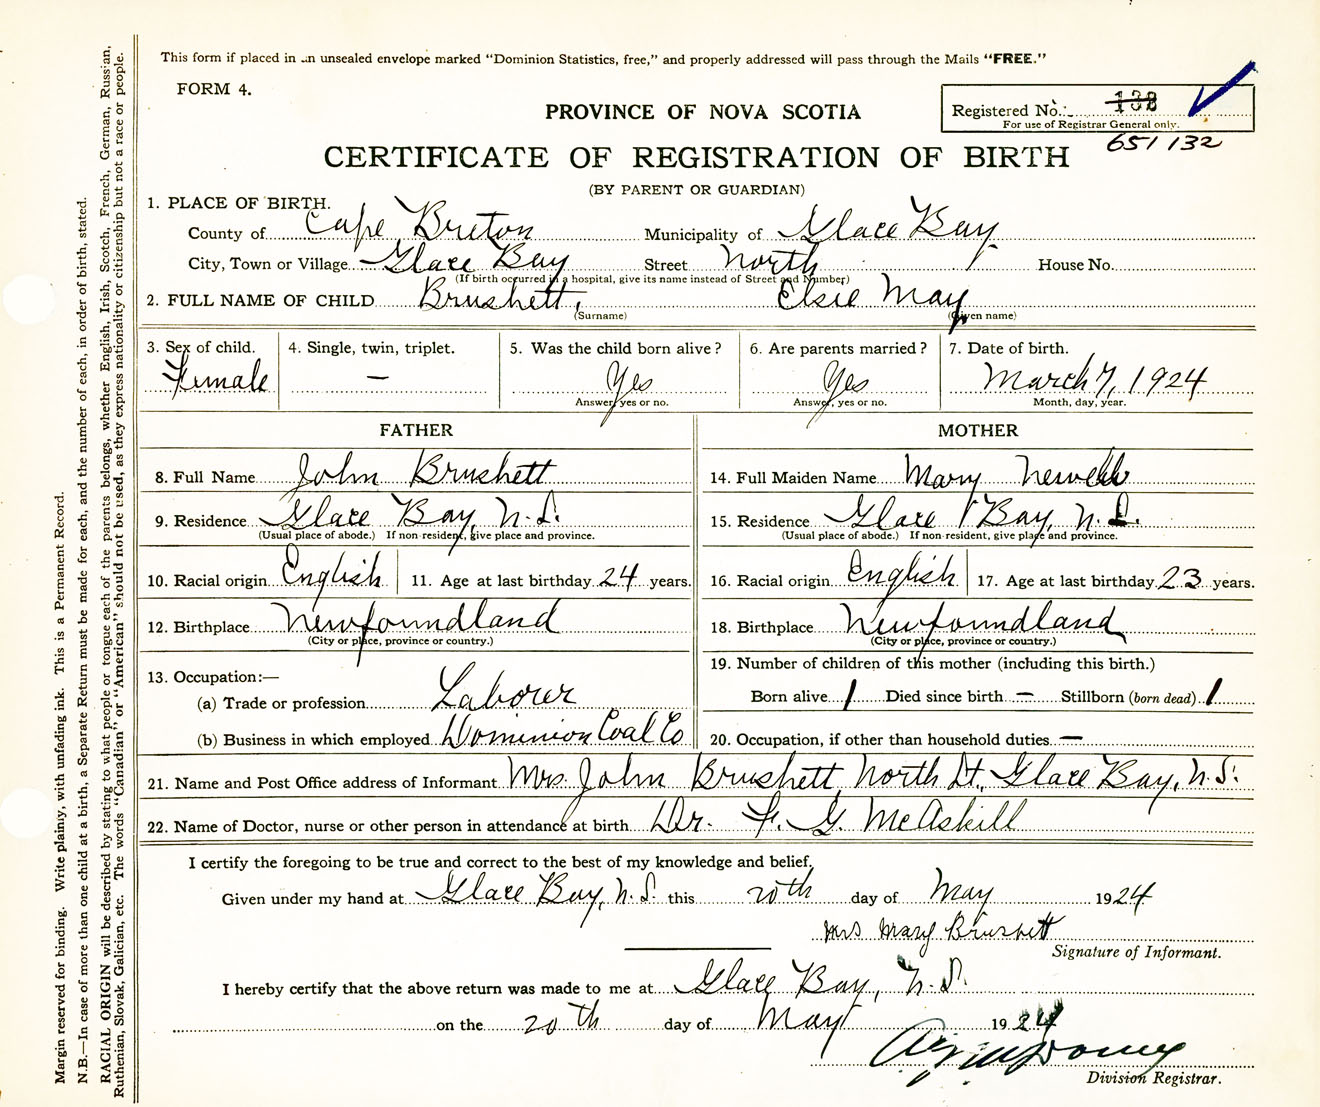 This form if placed in an unsealed envelope marked "Dominion Statistics, free," and properly addressed will pass through the Mails "FREE."
FORM 4.
PROVINCE OF NOVA SCOTIA
Registered No. 132
For use of Registrar General only.
651132
CERTIFICATE OF REGISTRATION OF BIRTH
(BY PARENT OR GUARDIAN)
1. PLACE OF BIRTH.
County of Cape Breton Municipality of Glace Bay
City, Town or Village Glace Bay Street North House No.
(If birth occurred in a hospital, give its name instead of Street and Number)
2. FULL NAME OF CHILD Brushett, Elsie May
(Surname) (Given name)
3. Sex of child. 4. Single, twin, triplet. 5. Was the child born alive? 6. Are parents married? 7. Date of birth.
Female — Yes Yes March 7, 1924
Answer, yes or no. Answer, yes or no. Month, day, year.
FATHER MOTHER
8. Full Name John Brushett 14. Full Maiden Name Mary Newell
9. Residence Glace Bay, N.S. 15. Residence Glace Bay, N.S.
(Usual place of abode.) If non-resident, give place and province. (Usual place of abode.) If non-resident, give place and province.
10. Racial origin English 11. Age at last birthday 24 years. 16. Racial origin English 17. Age at last birthday 23 years.
12. Birthplace Newfoundland 18. Birthplace Newfoundland
(City or place, province or country.) (City or place, province or country.)
13. Occupation:— 19. Number of children of this mother (including this birth.)
(a) Trade or profession Laborer Born alive 1 Died since birth — Stillborn (born dead) 1
(b) Business in which employed Dominion Coal Co 20. Occupation, if other than household duties. —
21. Name and Post Office address of Informant Mrs. John Brushett, North St., Glace Bay, N.S.
22. Name of Doctor, nurse or other person in attendance at birth Dr. F. G. McAskill
I certify the foregoing to be true and correct to the best of my knowledge and belief.
Given under my hand at Glace Bay, N.S. this 20th day of May 1924
Mrs Mary Brushett
Signature of Informant.
I hereby certify that the above return was made to me at Glace Bay, N.S.
on the 20th day of May 1924
Division Registrar.
Margin reserved for binding. Write plainly, with unfading ink. This is a Permanent Record.
N.B.—In case of more than one child at a birth, a Separate Return must be made for each, and the number of each, in order of birth, stated.
RACIAL ORIGIN will be described by stating to what people or tongue each of the parents belongs, whether English, Irish, Scotch, French, German, Russian,
Ruthenian, Slovak, Galician, etc. The words "Canadian" or "American" should not be used, as they express nationality or citizenship but not a race or people.